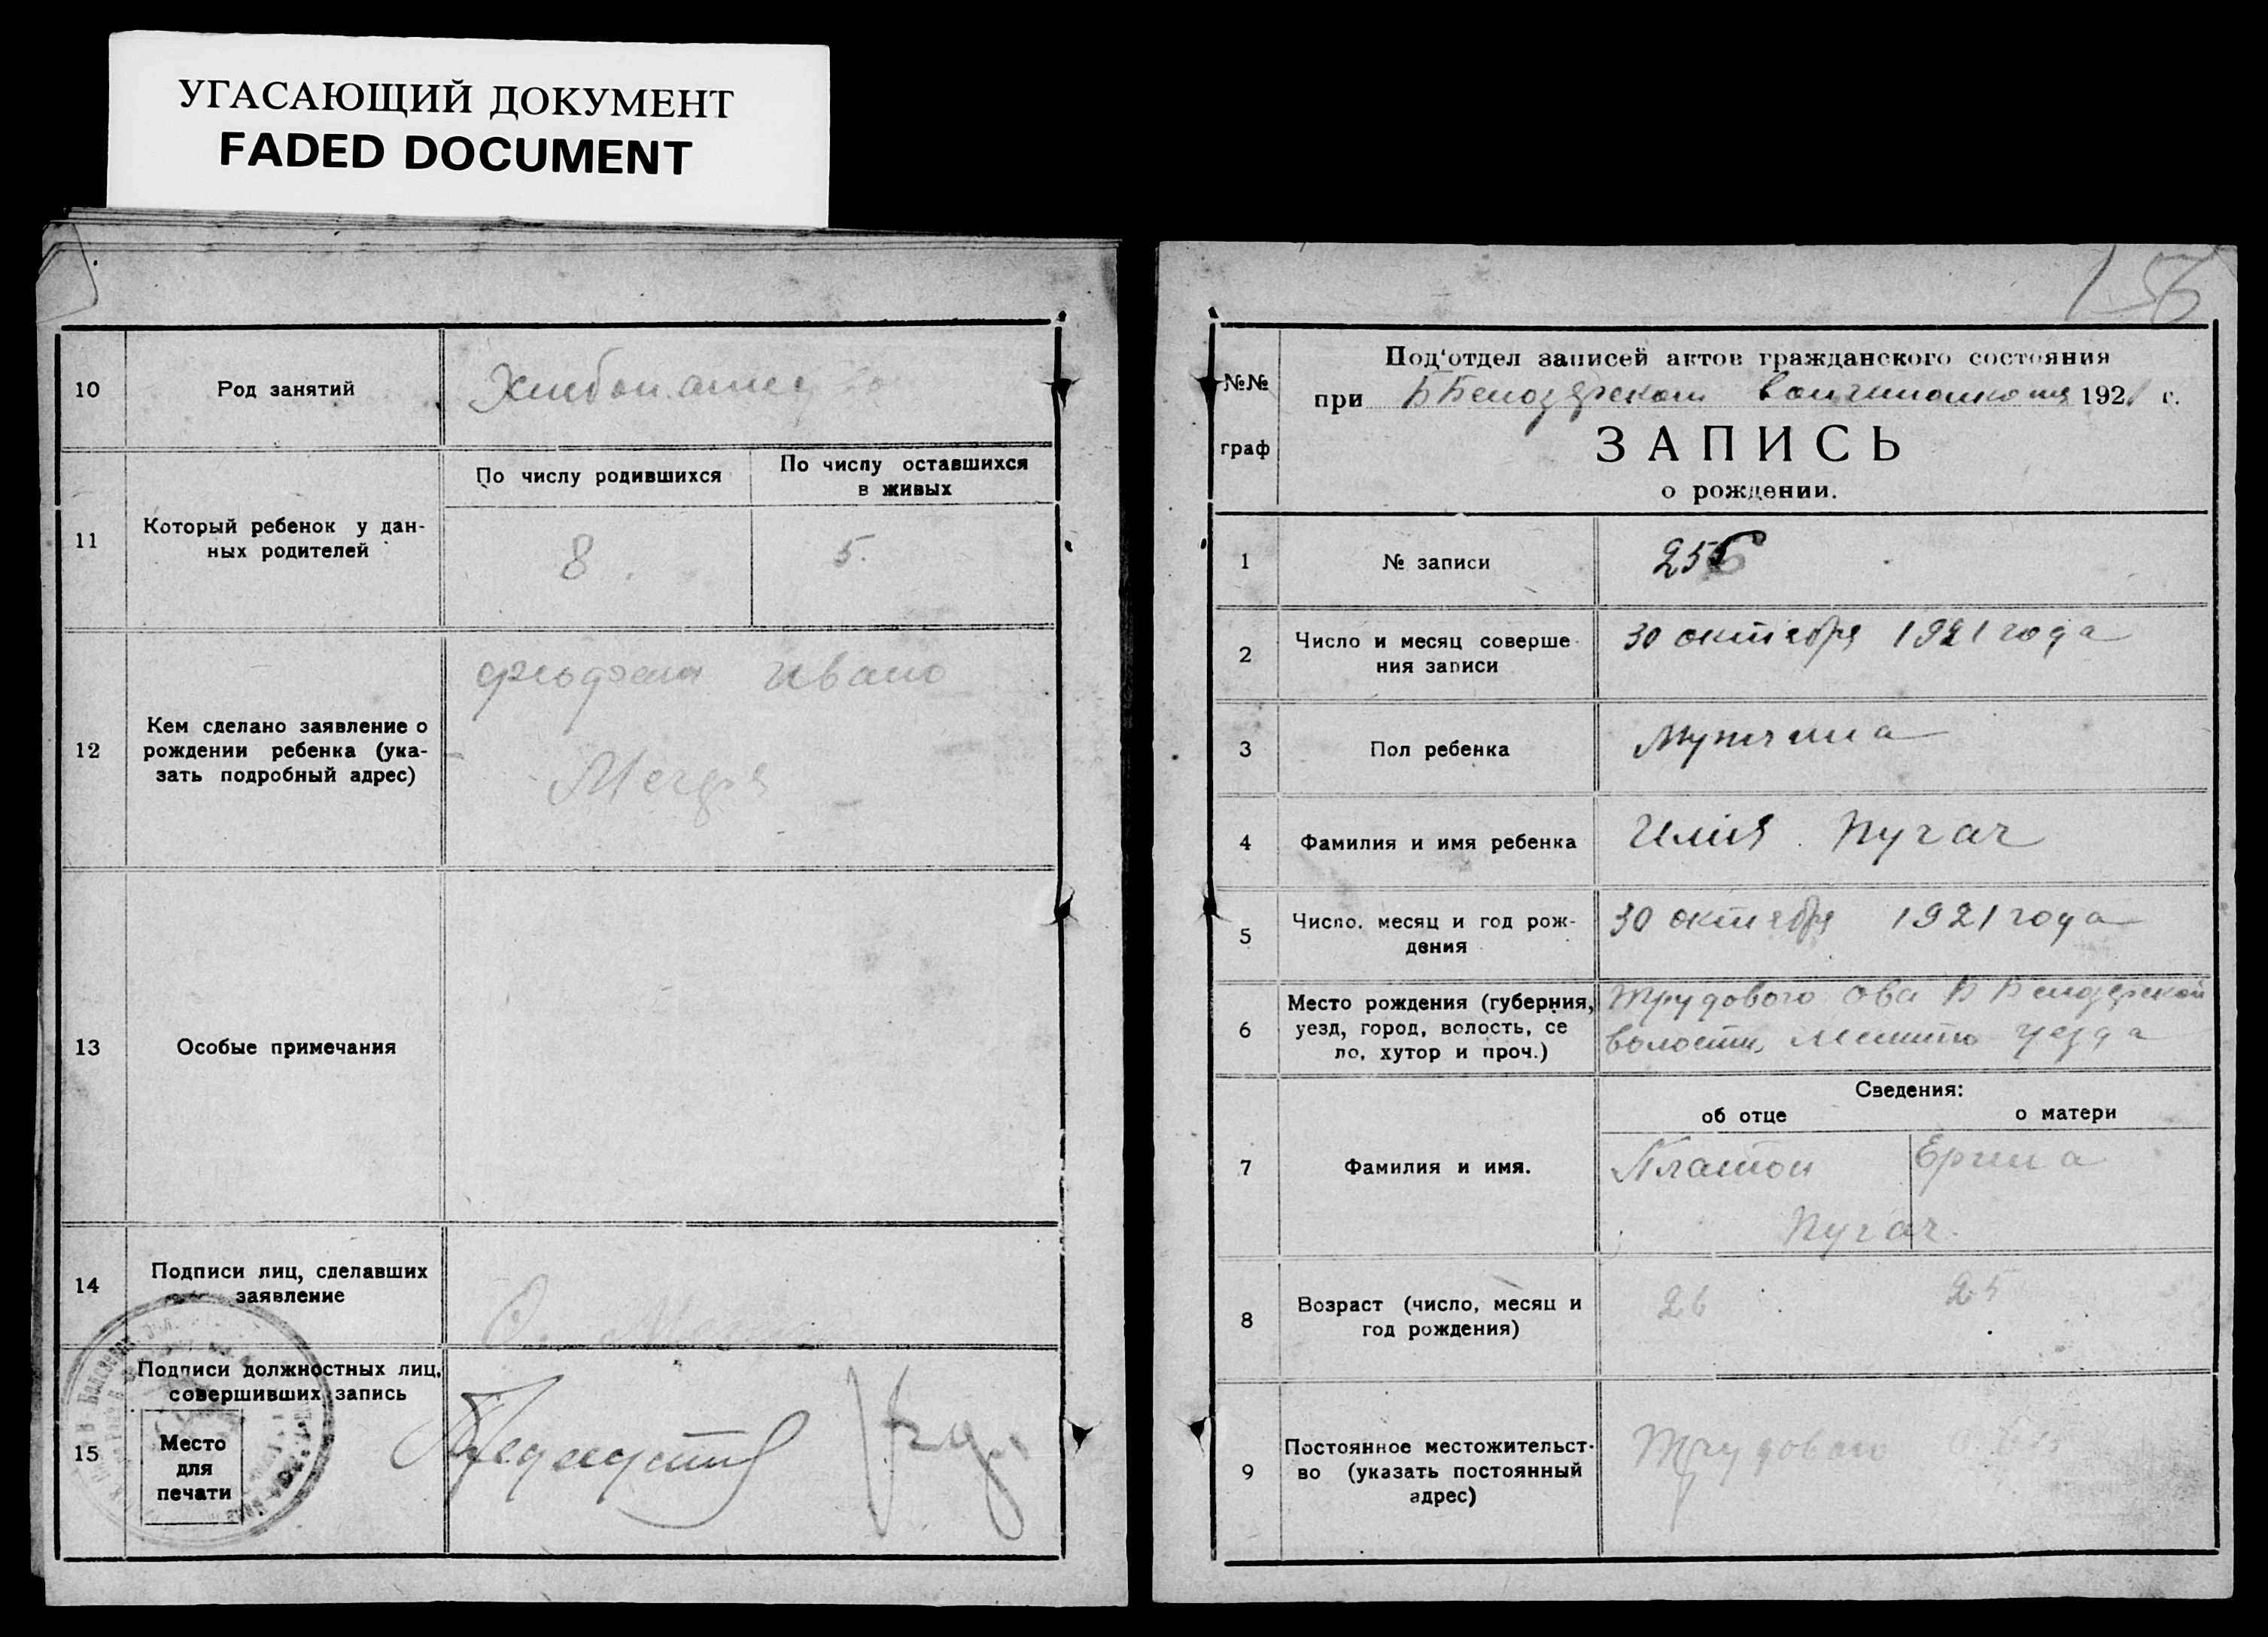 УГАСАЮЩИЙ ДОКУМЕНТ
FADED DOCUMENT
10
Род занятий
11
Который ребенок у дан-
ных родителей
По числу родившихся
По числу оставшихся
в живых
8.
5.
12
Кем сделано заявление о
рождении ребенка (ука-
зать подробный адрес)
Ивано
13
Особые примечания
14
Подписи лиц, сделавших
заявление
15
Подписи должностных лиц,
совершивших запись
Место
для
печати
156
№№
граф
Под'отдел записей актов гражданского состояния
при Б Белозерском 1921 г.
ЗАПИСЬ
о рождении.
1
№ записи
256
2
Число и месяц соверше-
ния записи
30 октября 1921 года
3
Пол ребенка
Мужчина
4
Фамилия и имя ребенка
Илия Пугач
5
Число, месяц и год рож-
дения
30 октября 1921 года
6
Место рождения (губерния,
уезд, город, волость, се
ло, хутор и проч.)
Трудового Ова Б Белозерской
волости, уезда
Сведения:
об отце
о матери
7
Фамилия и имя.
Платон
Пугач
8
Возраст (число, месяц и
год рождения)
26
25
9
Постоянное местожительст-
во (указать постоянный
адрес)
Трудового